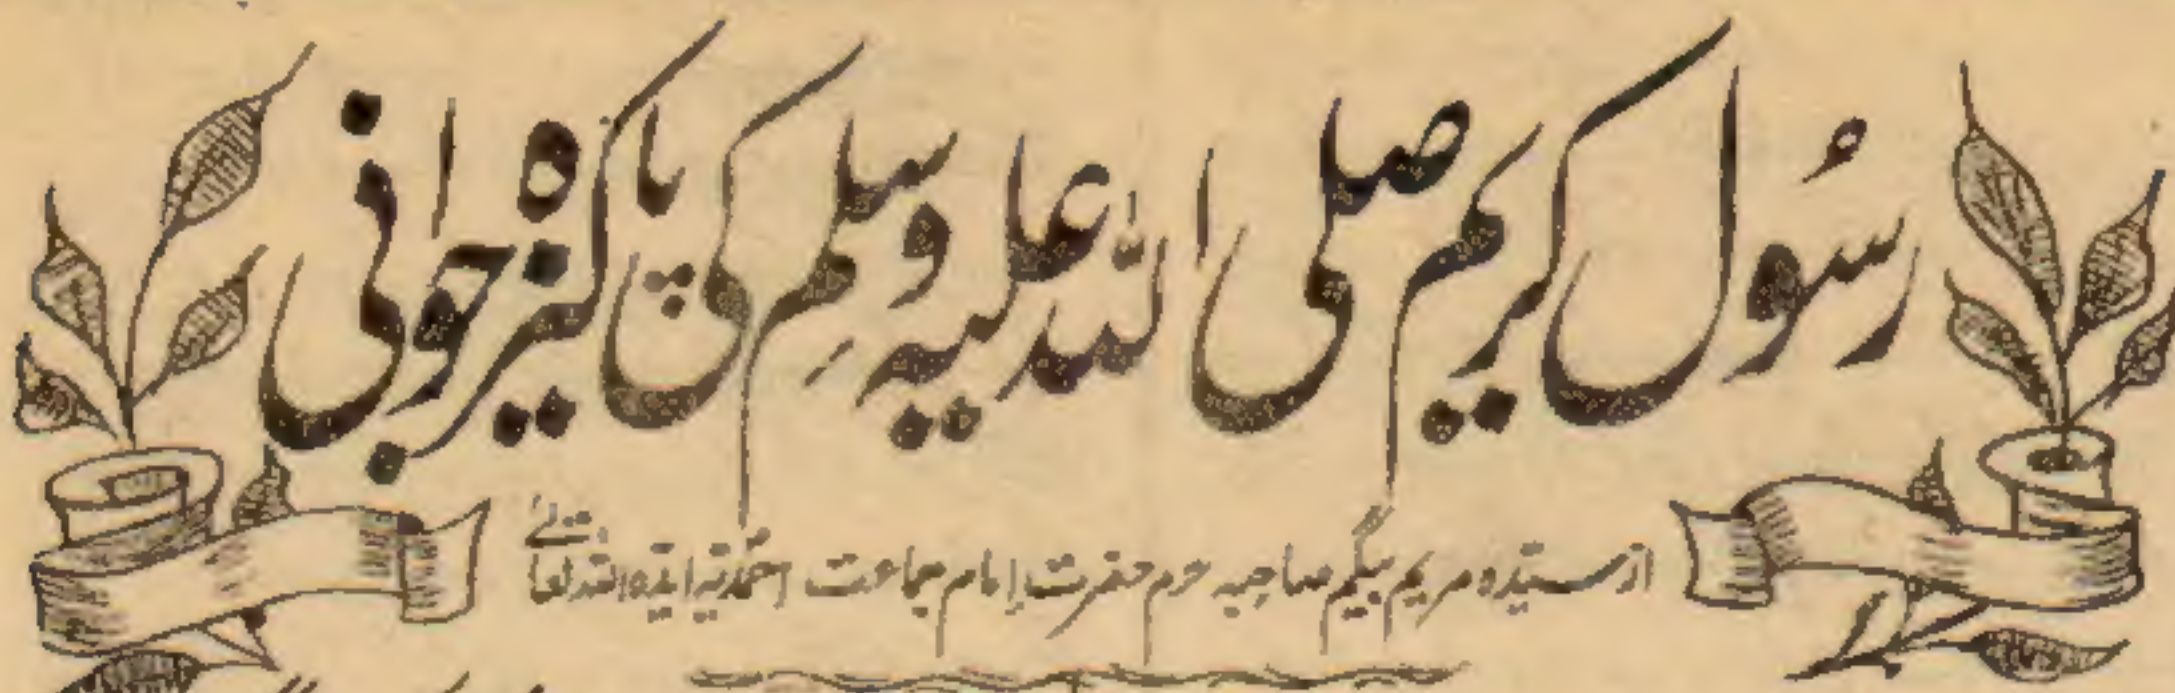 رسُول کریم صلی اللہ علیہ وسلم کی پاکیزہ جوانی
از سیّدہ مریم بیگم صاحبہ حرم حضرت اِمام جماعت احمدّیہ ایّدہ اللہ تعالےٰ